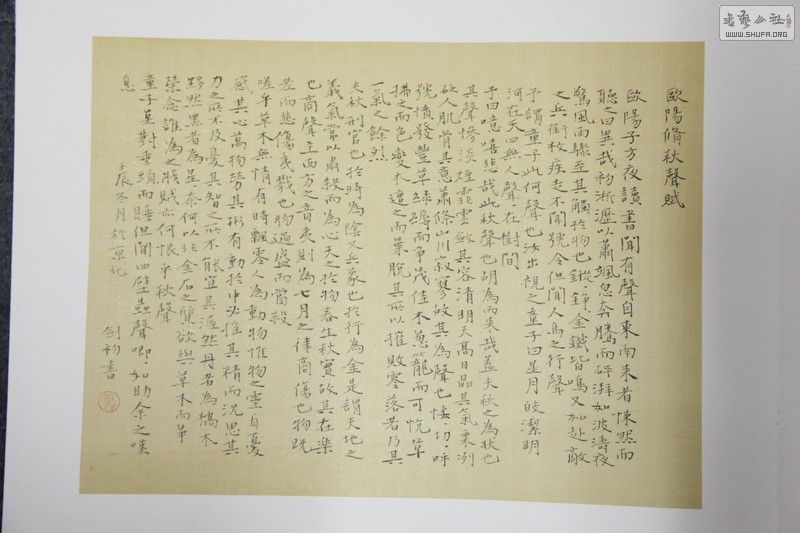 歐陽脩秋聲賦
歐陽子方夜讀書聞有聲自東南來者悚然而
聽之曰異哉初淅瀝以蕭颯忽奔騰而砰湃如波濤夜
驚風雨驟至其觸於物也鏦錚金鐵皆鳴又如赴敵
之兵銜枚疾走不聞號令但聞人馬之行聲
予謂童子此何聲也汝出視之童子曰星月皎潔明
河在天四無人聲聲在樹間
予曰噫嘻悲哉此秋聲也胡為而來哉蓋夫秋之為狀也
其聲慘淡煙霏雲斂其容清明天高日晶其氣栗冽
砭人肌骨其意蕭條山川寂寥故其為聲也悽切呼
號憤發豐草綠縟而爭茂佳木蔥籠而可悅草
拂之而色變木遭之而葉脫其所以摧敗零落者乃其
一氣之餘烈
夫秋刑官也於時為陰又兵象也於行為金是謂天地之
義氣常以肅殺而為心天之於物春生秋實故其在樂
也商聲主西方之音夷則為七月之律商傷也物既
老而悲傷夷戮也物過盛而當殺
嗟乎草木無情有時飄零人為動物惟物之靈百憂
感其心萬物勞其形有動於中必摧其精而況思其
力之所不及憂其智之所不能宜其渥然丹者為槁木
黟然黑者為星奈何以非金石之質欲與草木而爭
榮念誰為之戕賊亦何恨乎秋聲
童子莫對垂頭而睡但聞四壁蟲聲唧如助余之嘆
息
壬辰冬月於京北
劍初書
書藝公社
WWW.SHUFA.ORG